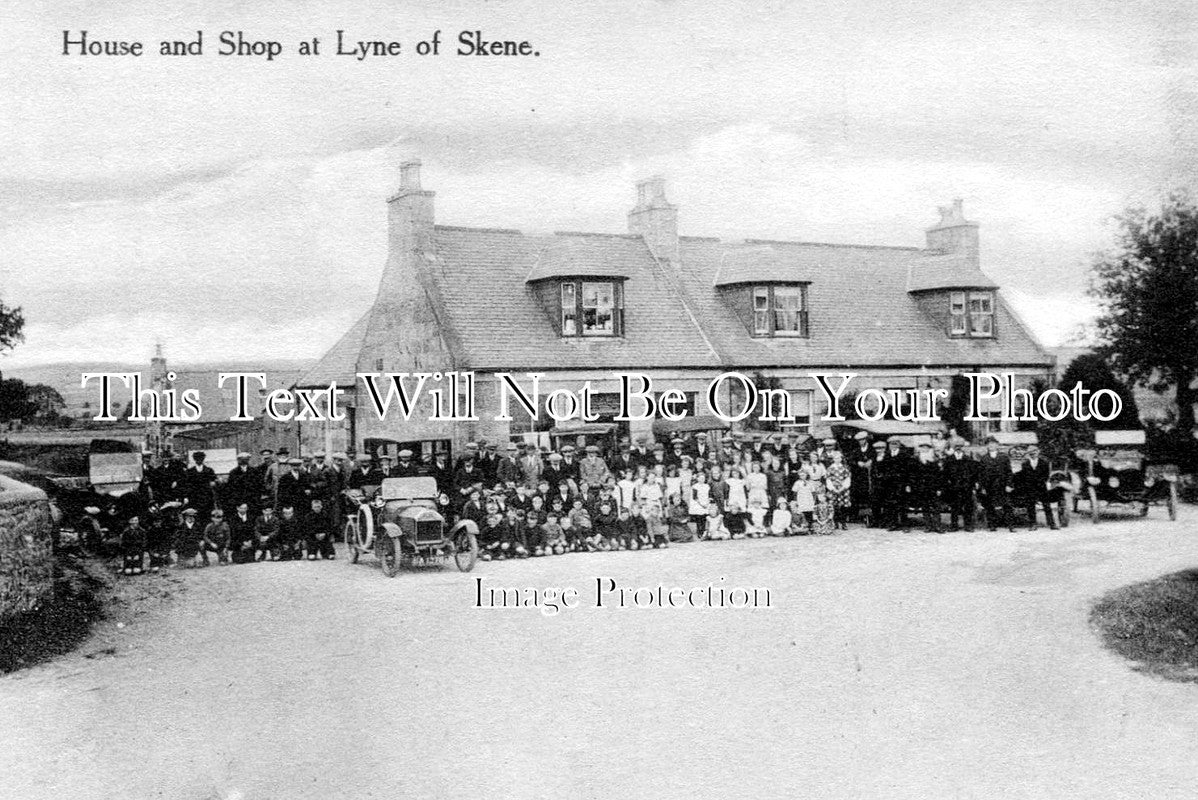 House and Shop at Lyne of Skene.
This Text Will Not Be On Your Photo
Image Protection